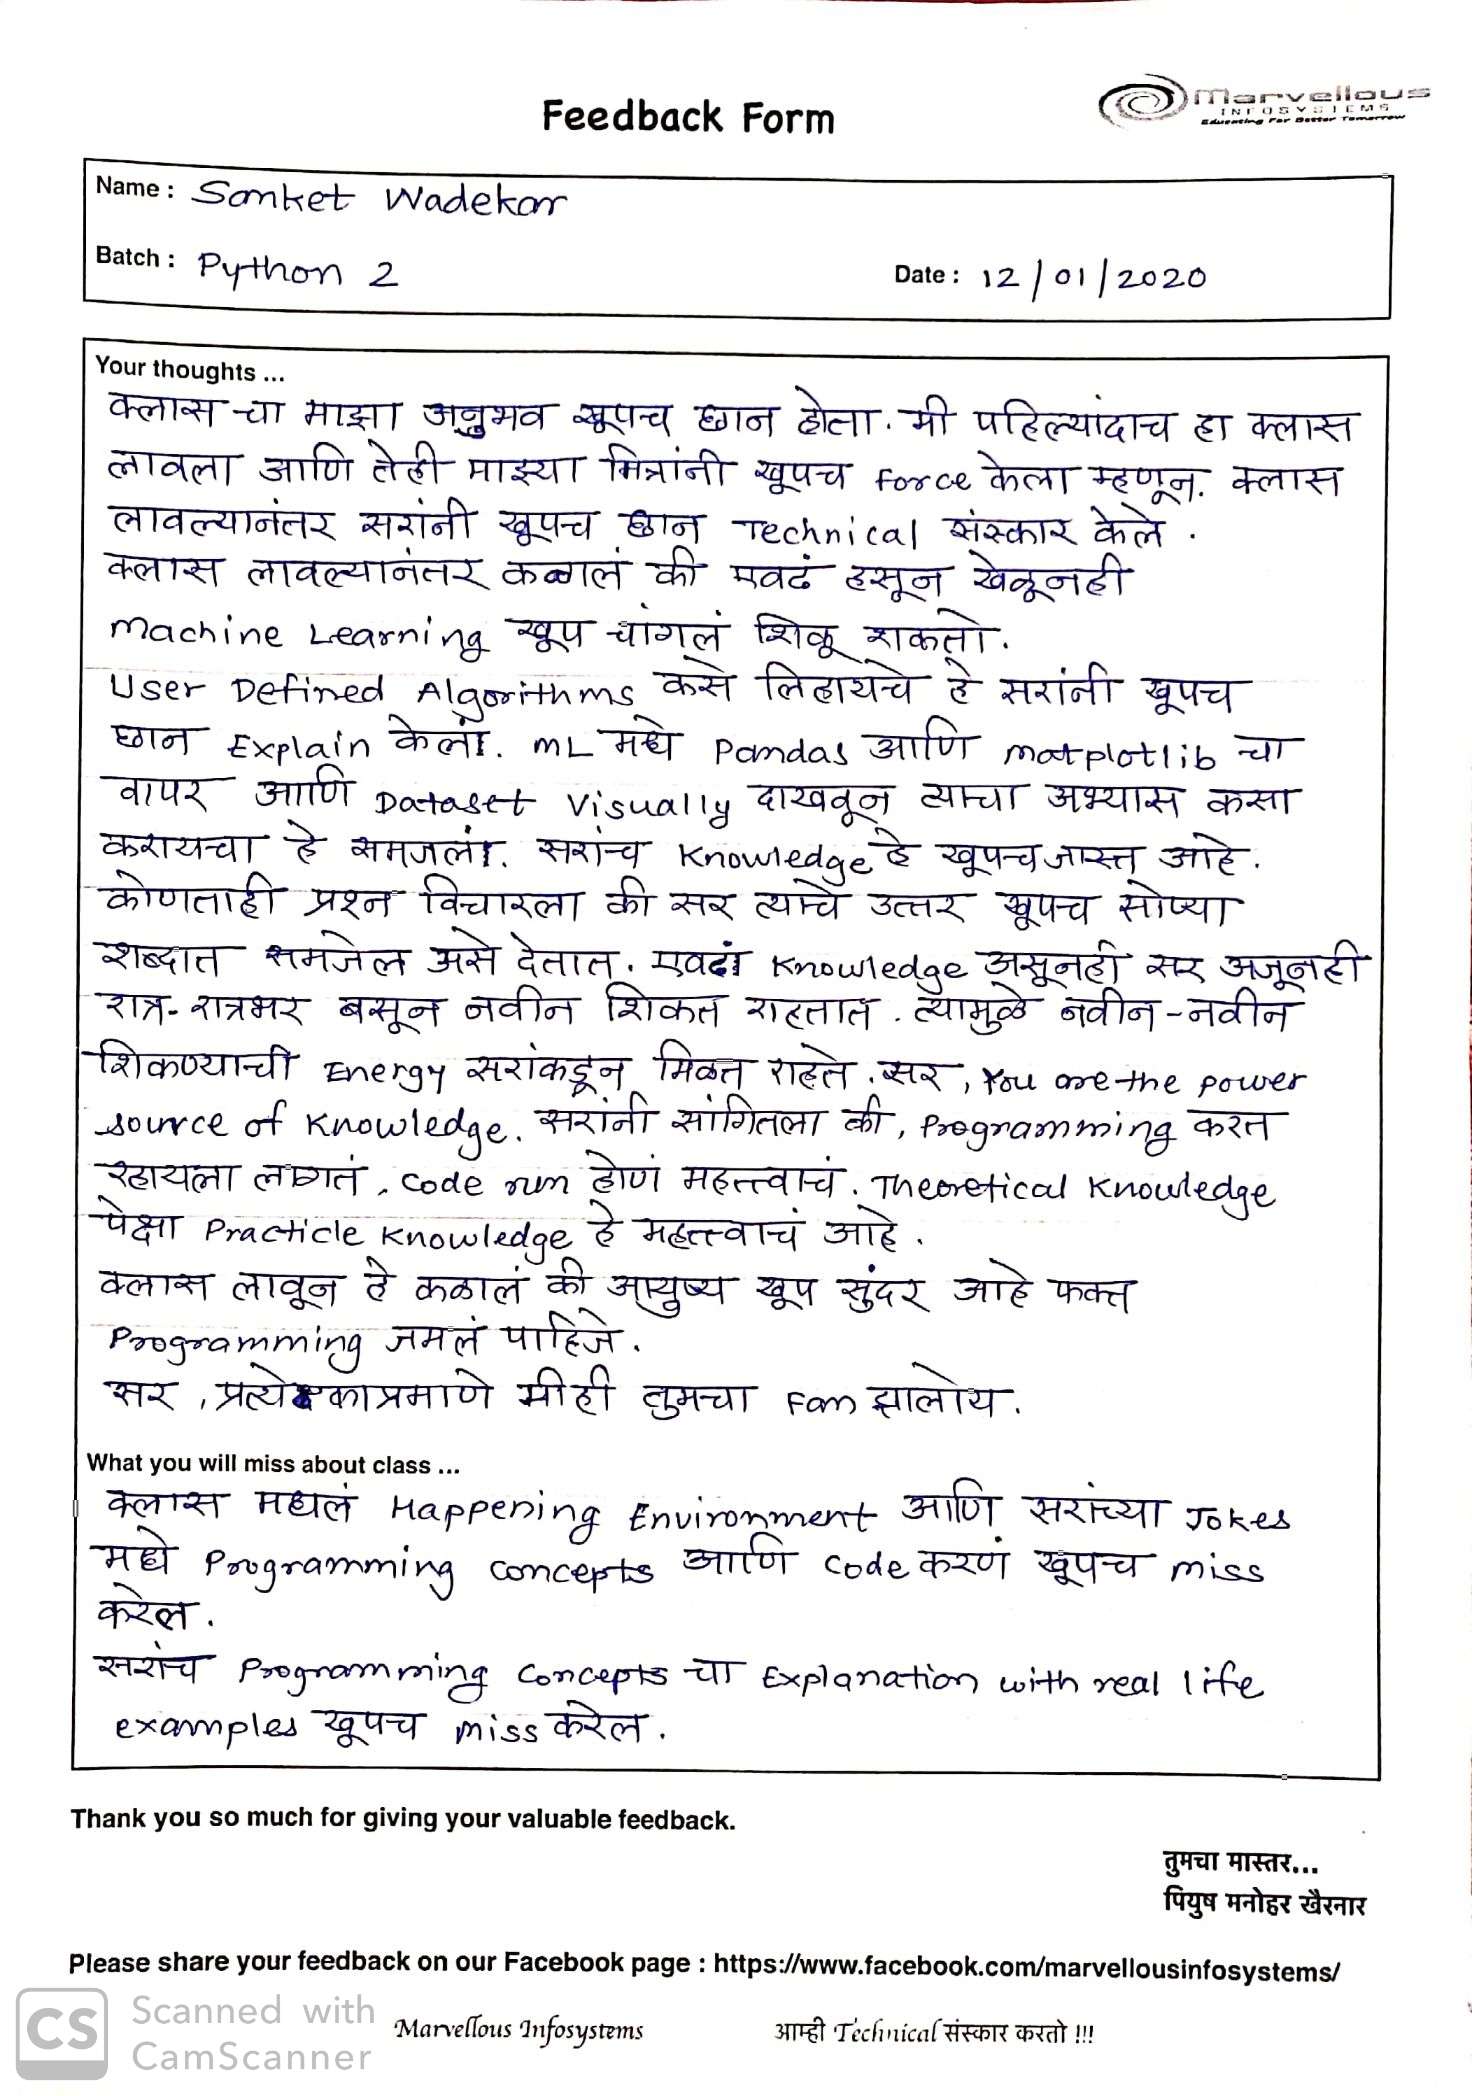 Marvellous
INFOSYSTEMS
Educating For Better Tomorrow
Feedback Form
Name : Sanket Wadekar
Batch : Python 2
Date : 12/01/2020
Your thoughts ...
क्लास चा माझा अनुभव खूपच छान होता. मी पहिल्यांदाच हा क्लास
लावला आणि तेही माझ्या मित्रांनी खूपच Force केला म्हणून. क्लास
लावल्यानंतर सरांनी खूपच छान Technical संस्कार केले.
क्लास लावल्यानंतर कळालं की एवढं हसून खेळूनही
Machine Learning खूप चांगलं शिकू शकतो.
User Defined Algorithms कसे लिहायचे हे सरांनी खूपच
छान Explain केलं. ML मधे Pandas आणि Matplotlib चा
वापर आणि Dataset Visually दाखवून त्याचा अभ्यास कसा
करायचा हे समजलं. सरांच Knowledge हे खूपच जास्त आहे.
कोणताही प्रश्न विचारला की सर त्याचे उत्तर खूपच सोप्या
शब्दात समजेल असे देतात. एवढं Knowledge असूनही सर अजूनही
रात्र-रात्रभर बसून नवीन शिकत राहतात. त्यामुळे नवीन-नवीन
शिकण्याची Energy सरांकडून मिळत राहते. सर, You are the power
source of Knowledge. सरांनी सांगितला की, Programming करत
रहायला लागतं, code run होणं महत्त्वाचं. Theoretical Knowledge
पेक्षा Practicle Knowledge हे महत्त्वाचं आहे.
क्लास लावून हे कळालं की आयुष्य खूप सुंदर आहे फक्त
Programming जमलं पाहिजे.
सर, प्रत्येकाप्रमाणे मीही तुमचा Fan झालोय.
What you will miss about class ...
क्लास मधलं Happening Environment आणि सरांच्या Jokes
मधे Programming concepts आणि code करणं खूपच miss
करेल.
सरांच Programming Concepts चा Explanation with real life
examples खूपच miss करेल.
Thank you so much for giving your valuable feedback.
तुमचा मास्तर...
पियुष मनोहर खैरनार
Please share your feedback on our Facebook page : https://www.facebook.com/marvellousinfosystems/
CS Scanned with
CamScanner
Marvellous Infosystems
आम्ही Technical संस्कार करतो !!!